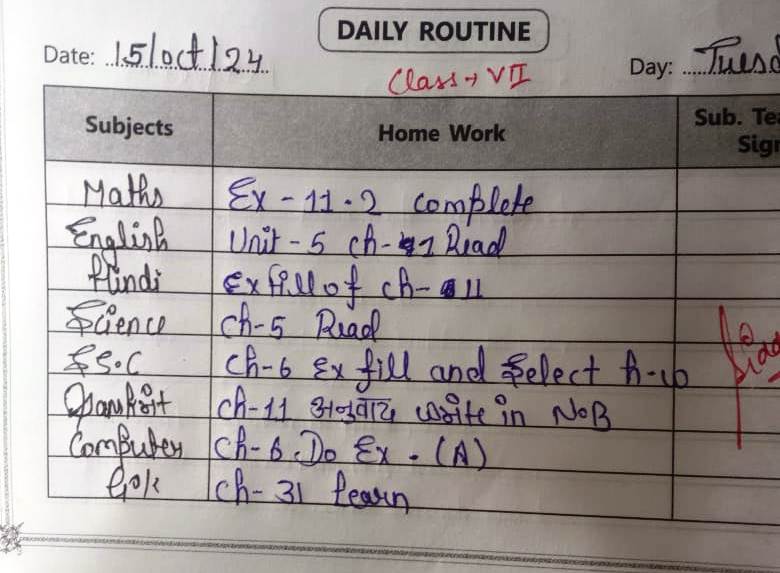 DAILY ROUTINE
Date: 15/oct/24
Class → VII
Day: Tuesd
Subjects Home Work Sub. Tea Sign
Maths Ex - 11.2 complete
English Unit - 5 ch- 1 Read
Hindi Ex fill of ch- 11
Science Ch-5 Read
S.S.C Ch-6 Ex fill and Select h-w
Sanskrit Ch-11 अनुवाद write in N.B
Computer Ch- 6. Do Ex - (A)
G.K Ch- 31 learn